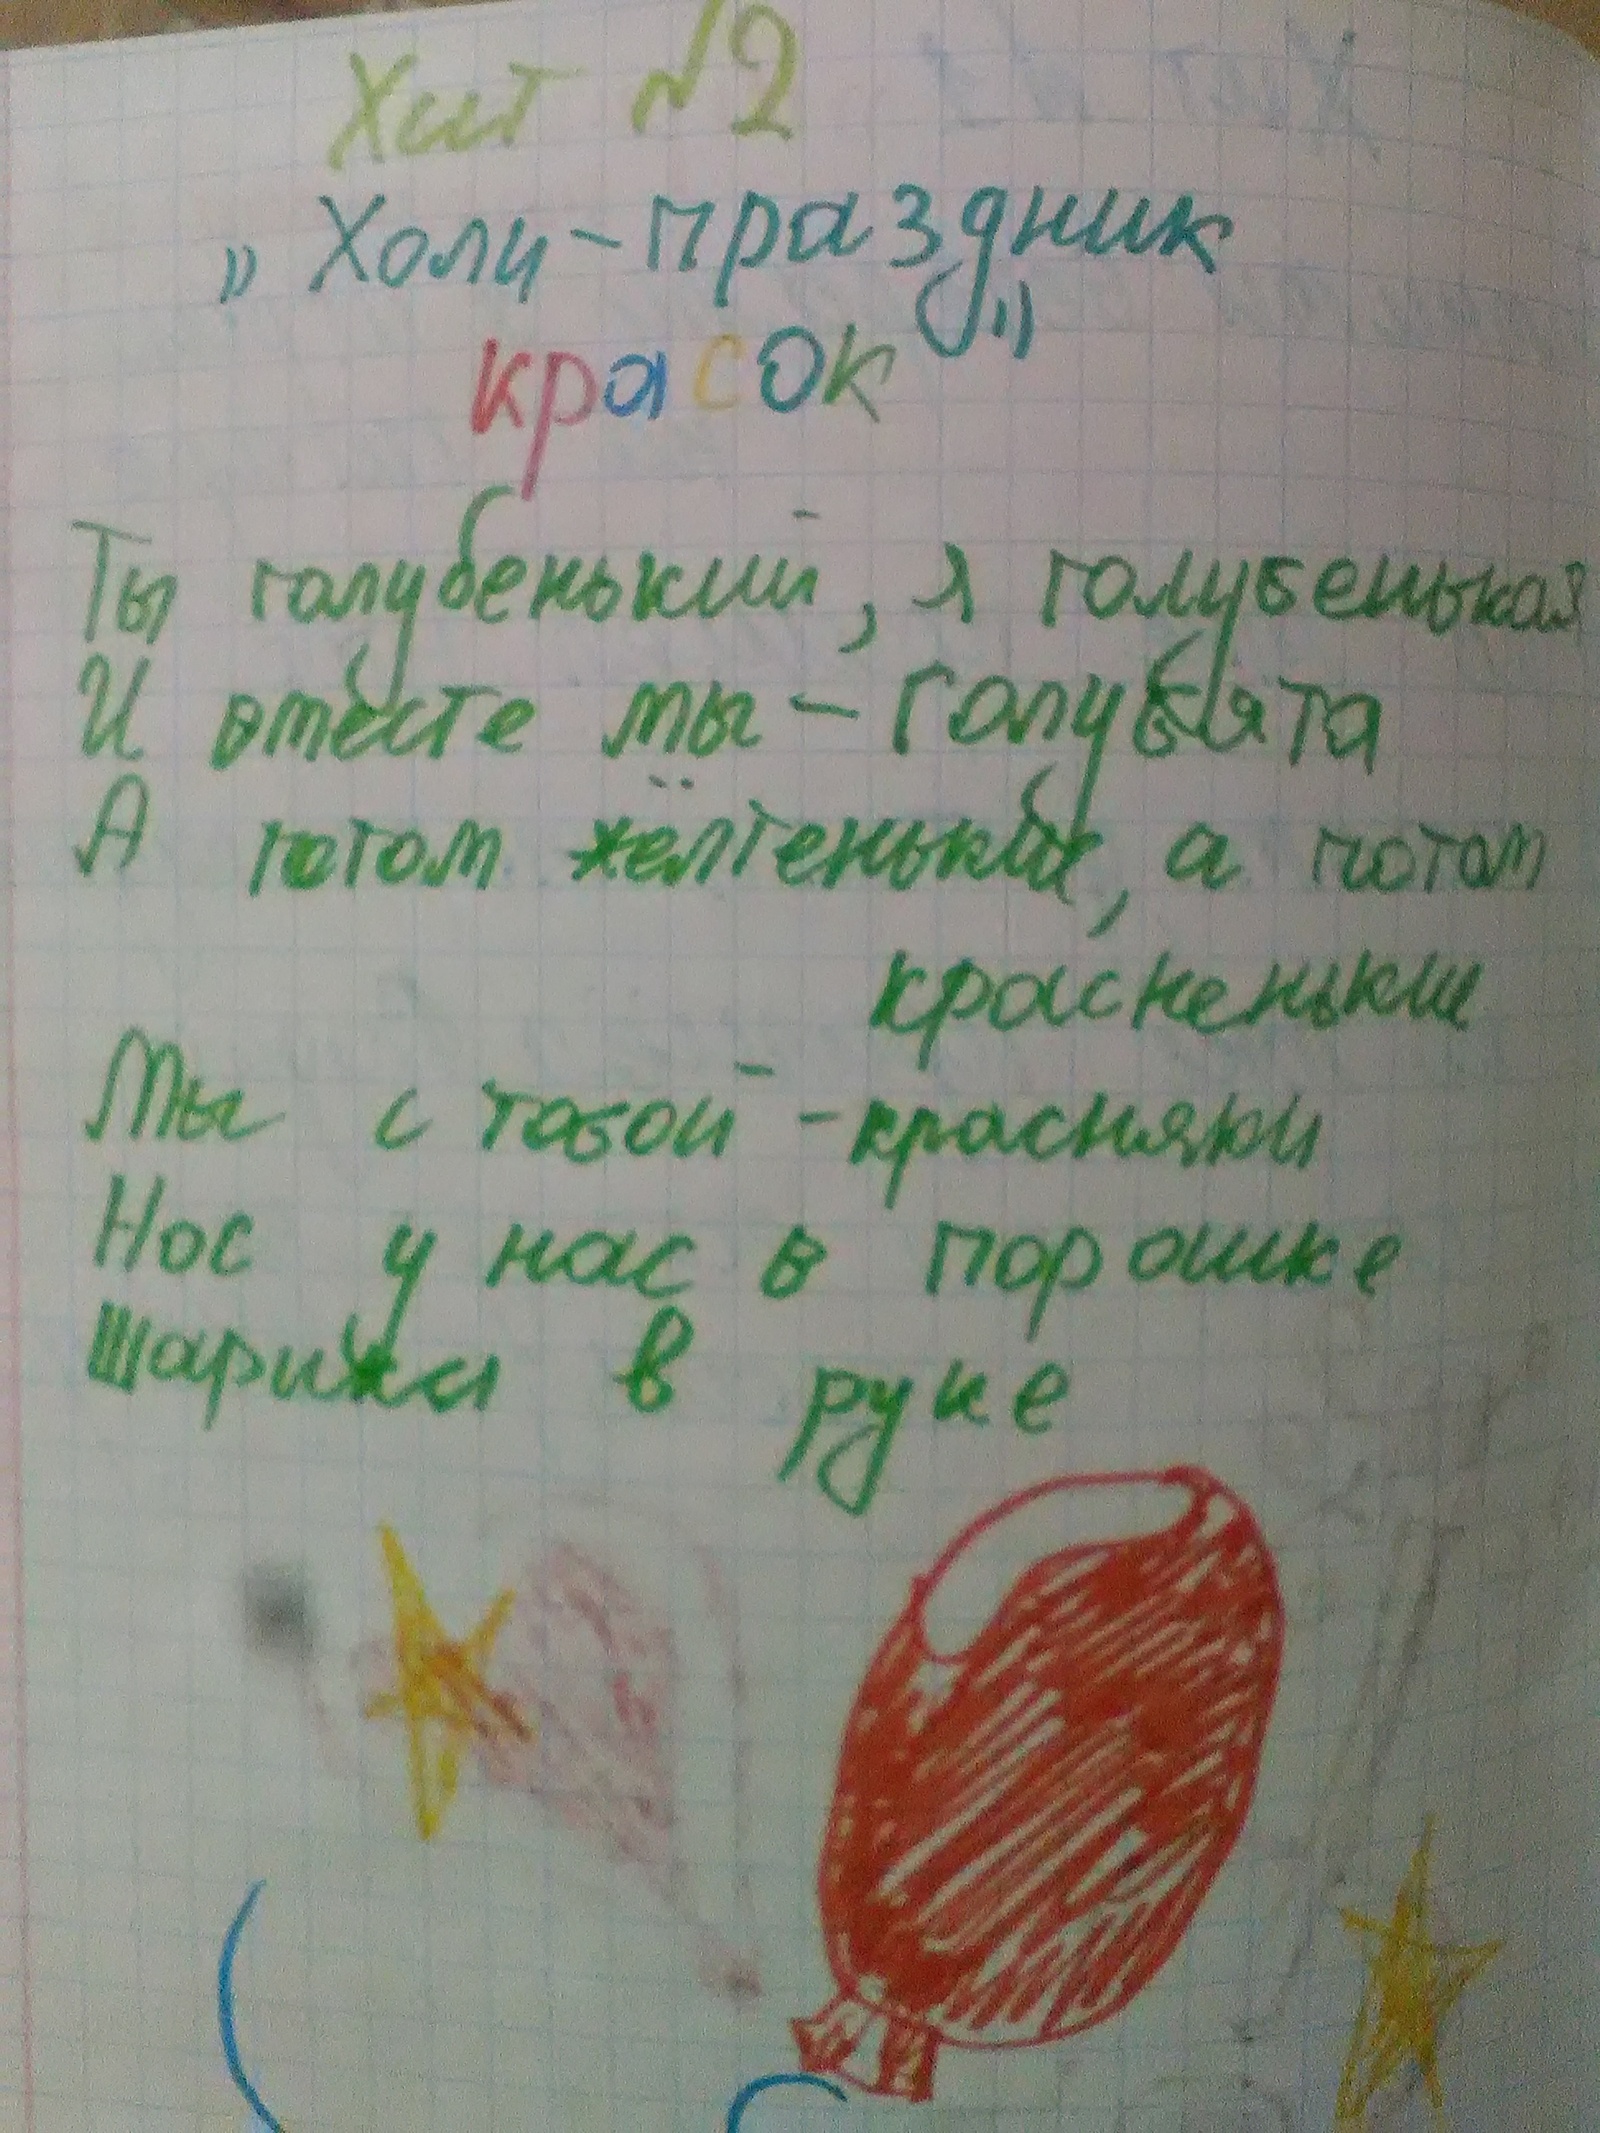 Хит №2
„Холи-праздник
красок"
Ты голубенький, я голубенькая
И вместе мы - голубята
А потом жёлтенькие, а потом
красненькие
Мы с тобой - красняки
Нос у нас в порошке
Шарики в руке